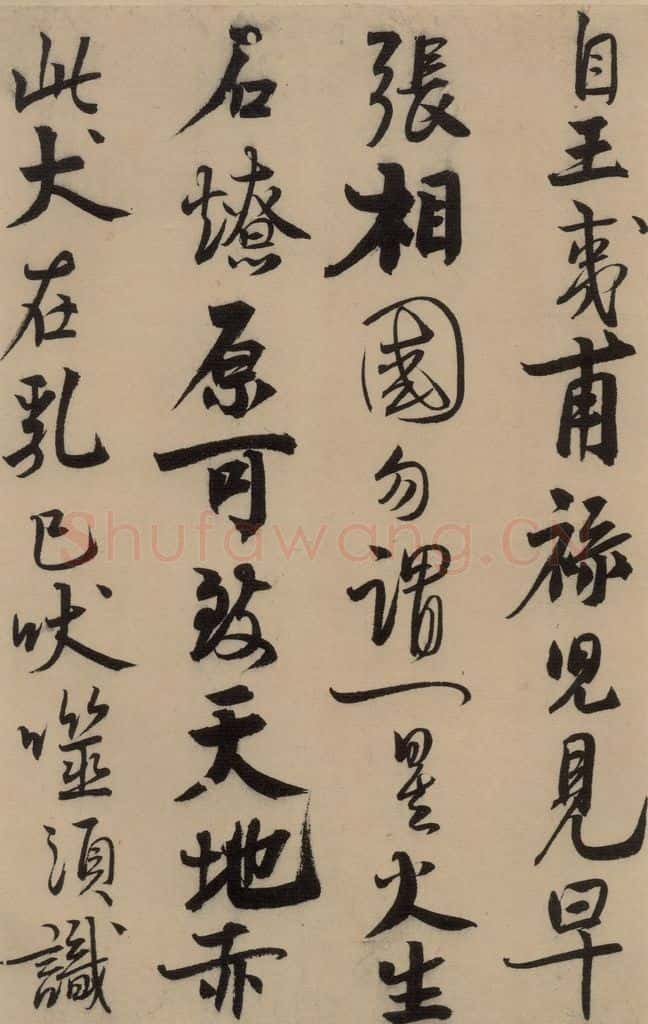 自王夷甫祿児見早
張相國勿謂一星火生
君燎原可致天地赤
此犬在乳已吠噬須識
Shufawang.CN